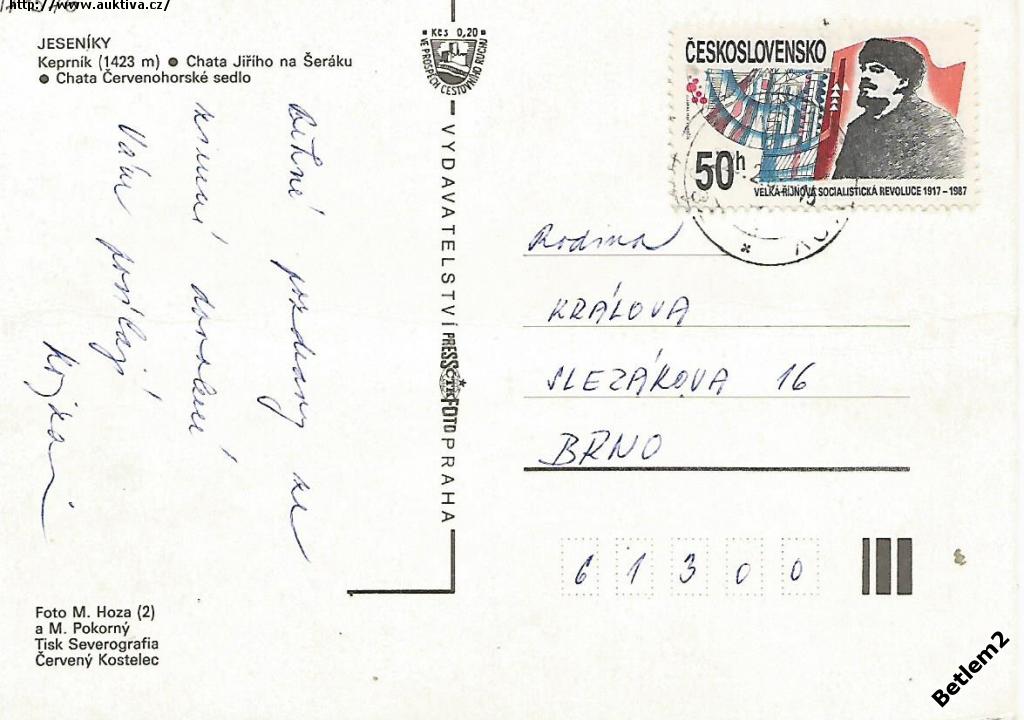 http://www.auktiva.cz/
JESENÍKY
Keprník (1423 m) ● Chata Jiřího na Šeráku
● Chata Červenohorské sedlo
Kčs 0,20
VE PROSPĚCH CESTOVNÍHO RUCHU
ČESKOSLOVENSKO
50h
VELKÁ ŘÍJNOVÁ SOCIALISTICKÁ REVOLUCE 1917–1987
pozdravy ze
zimní dovolené
Vám posílají
VYDAVATELSTVÍ PRESSFOTO PRAHA
ČTK
Rodina
KRÁLOVA
SLEZÁKOVA 16
BRNO
61300
Foto M. Hoza (2)
a M. Pokorný
Tisk Severografia
Červený Kostelec
Betlem2